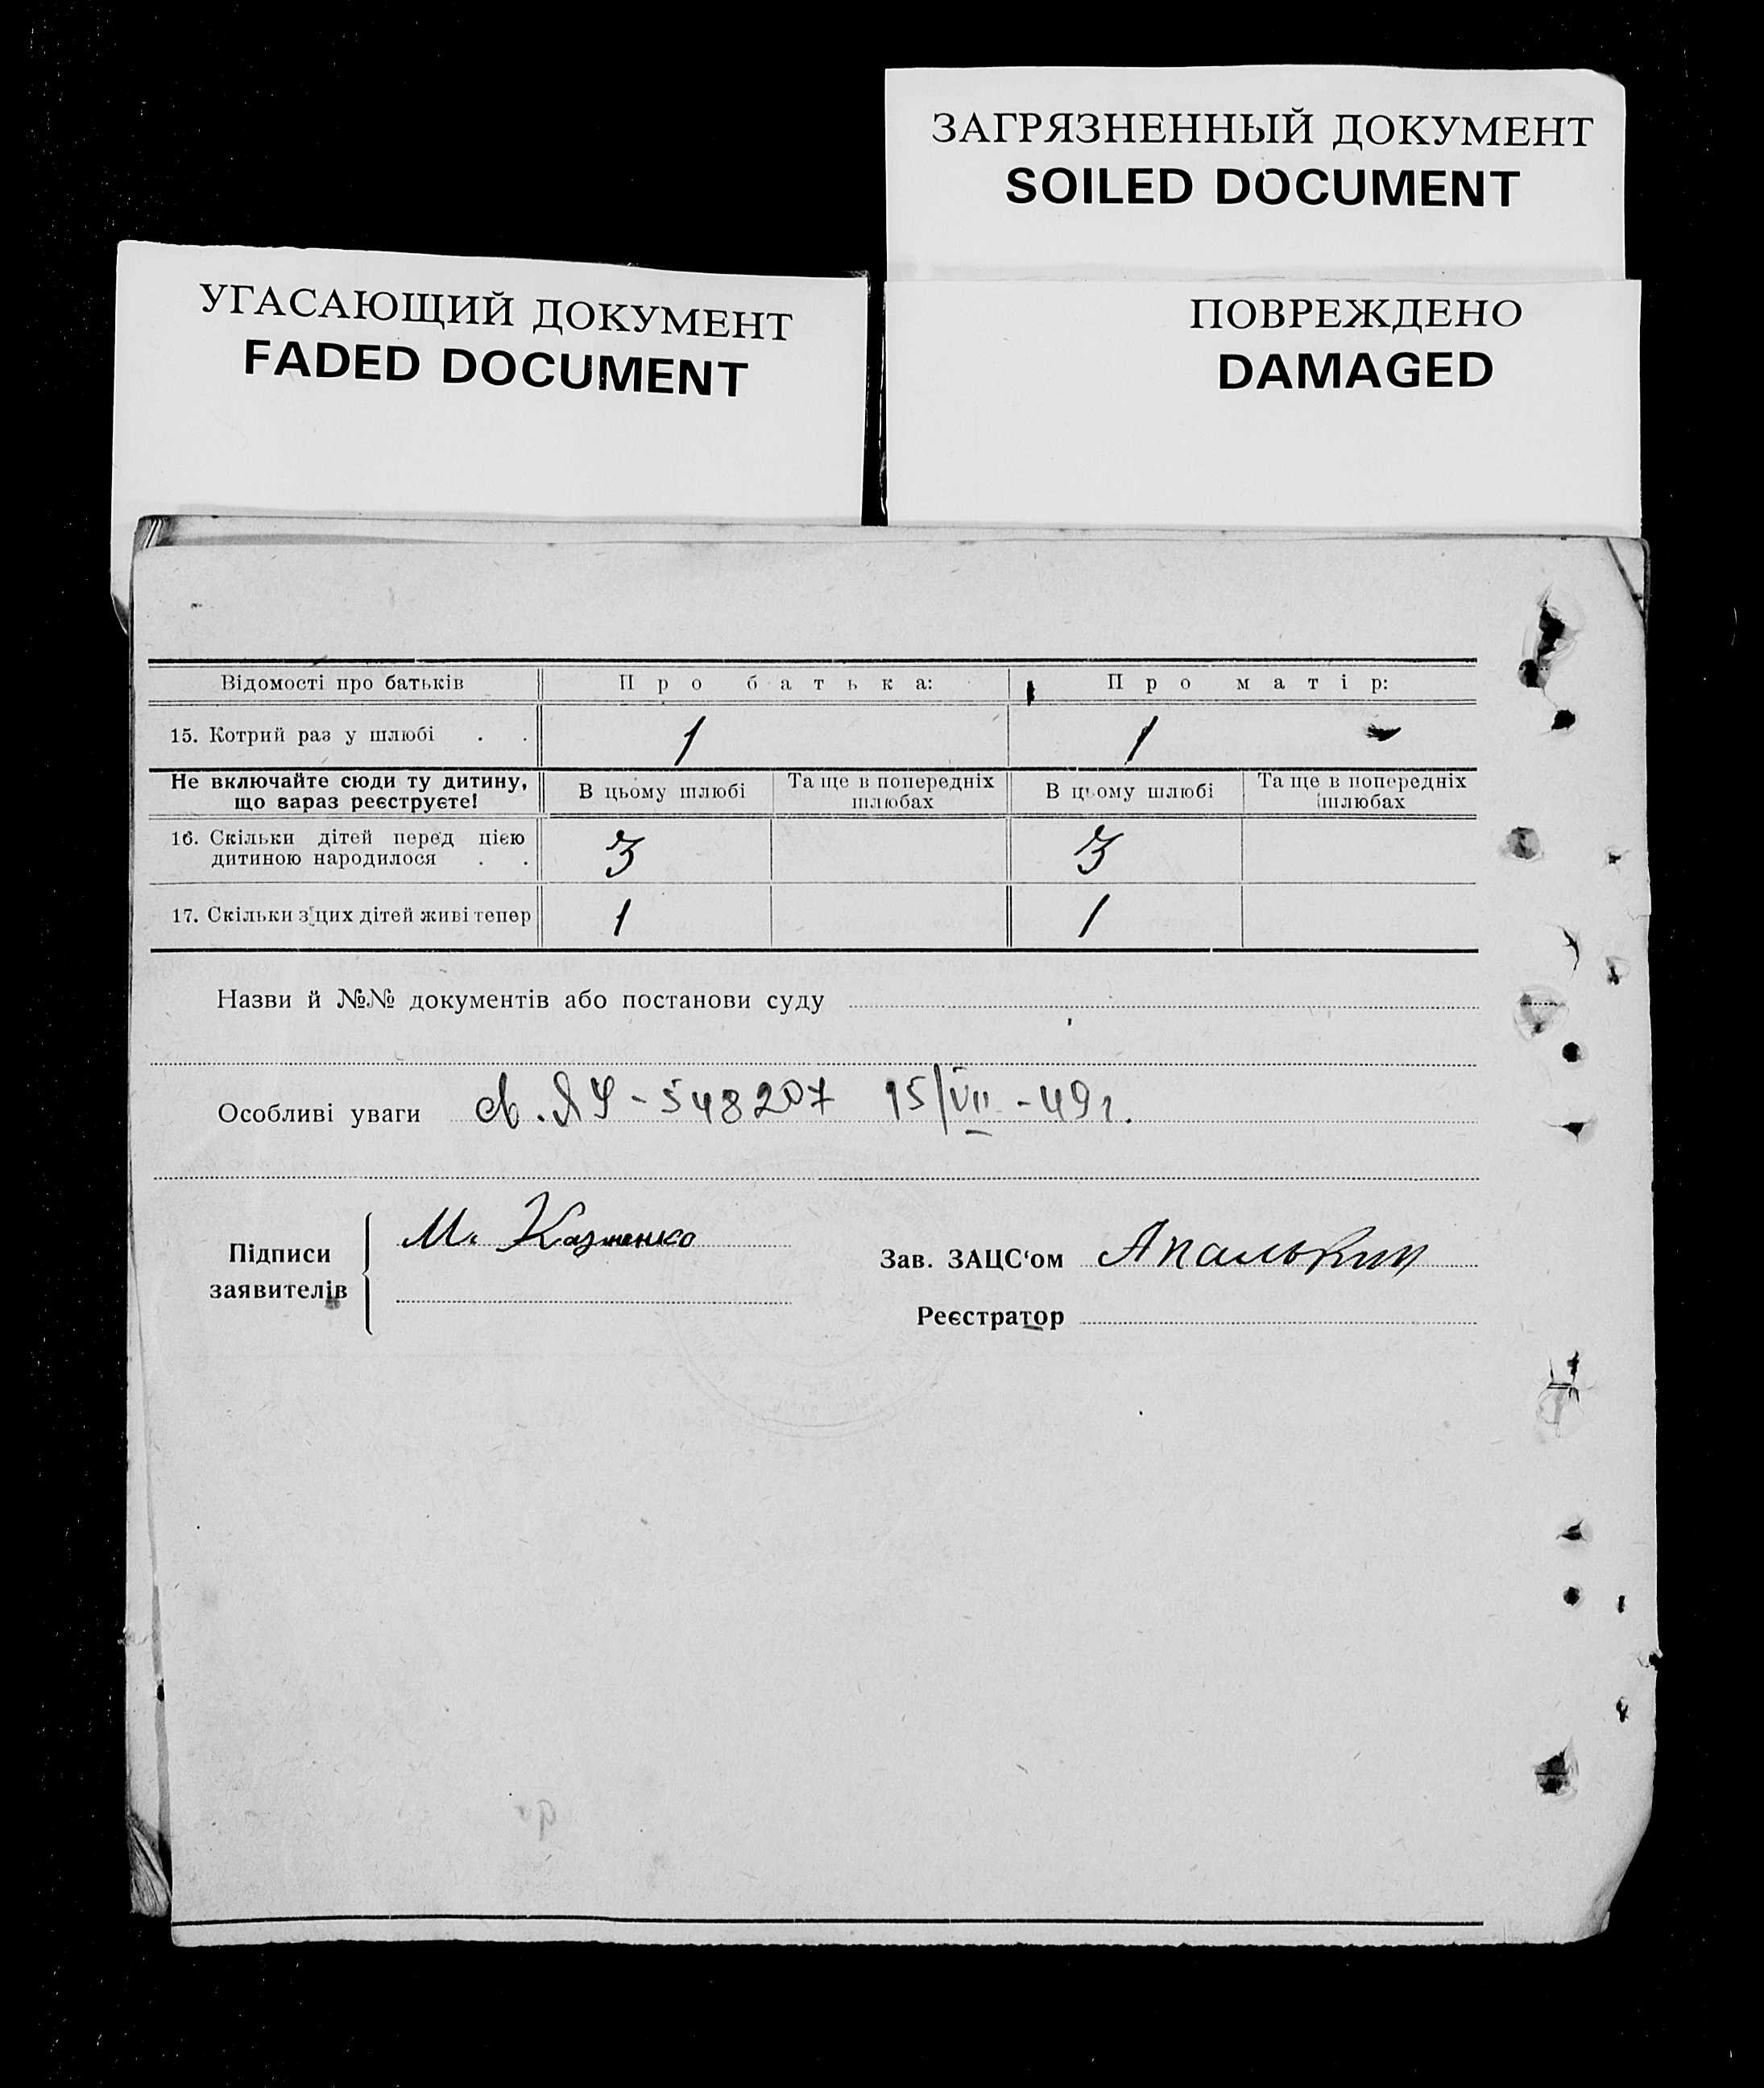 ЗАГРЯЗНЕННЫЙ ДОКУМЕНТ
SOILED DOCUMENT
УГАСАЮЩИЙ ДОКУМЕНТ
FADED DOCUMENT
ПОВРЕЖДЕНО
DAMAGED
Відомості про батьків Про батька: Про матір:
15. Котрий раз у шлюбі . . 1 1
Не включайте сюди ту дитину, що вараз реєструєте! В цьому шлюбі Та ще в попередніх шлюбах В цьому шлюбі Та ще в попередніх шлюбах
16. Скільки дітей перед цією
дитиною народилося . . 3 3
17. Скільки з цих дітей живі тепер 1 1
Назви й №№ документів або постанови суду
Особливі уваги 548207 15/VII-49г.
Підписи
заявителів М.
Зав. ЗАЦС‘ом Апалькин
Реєстратор